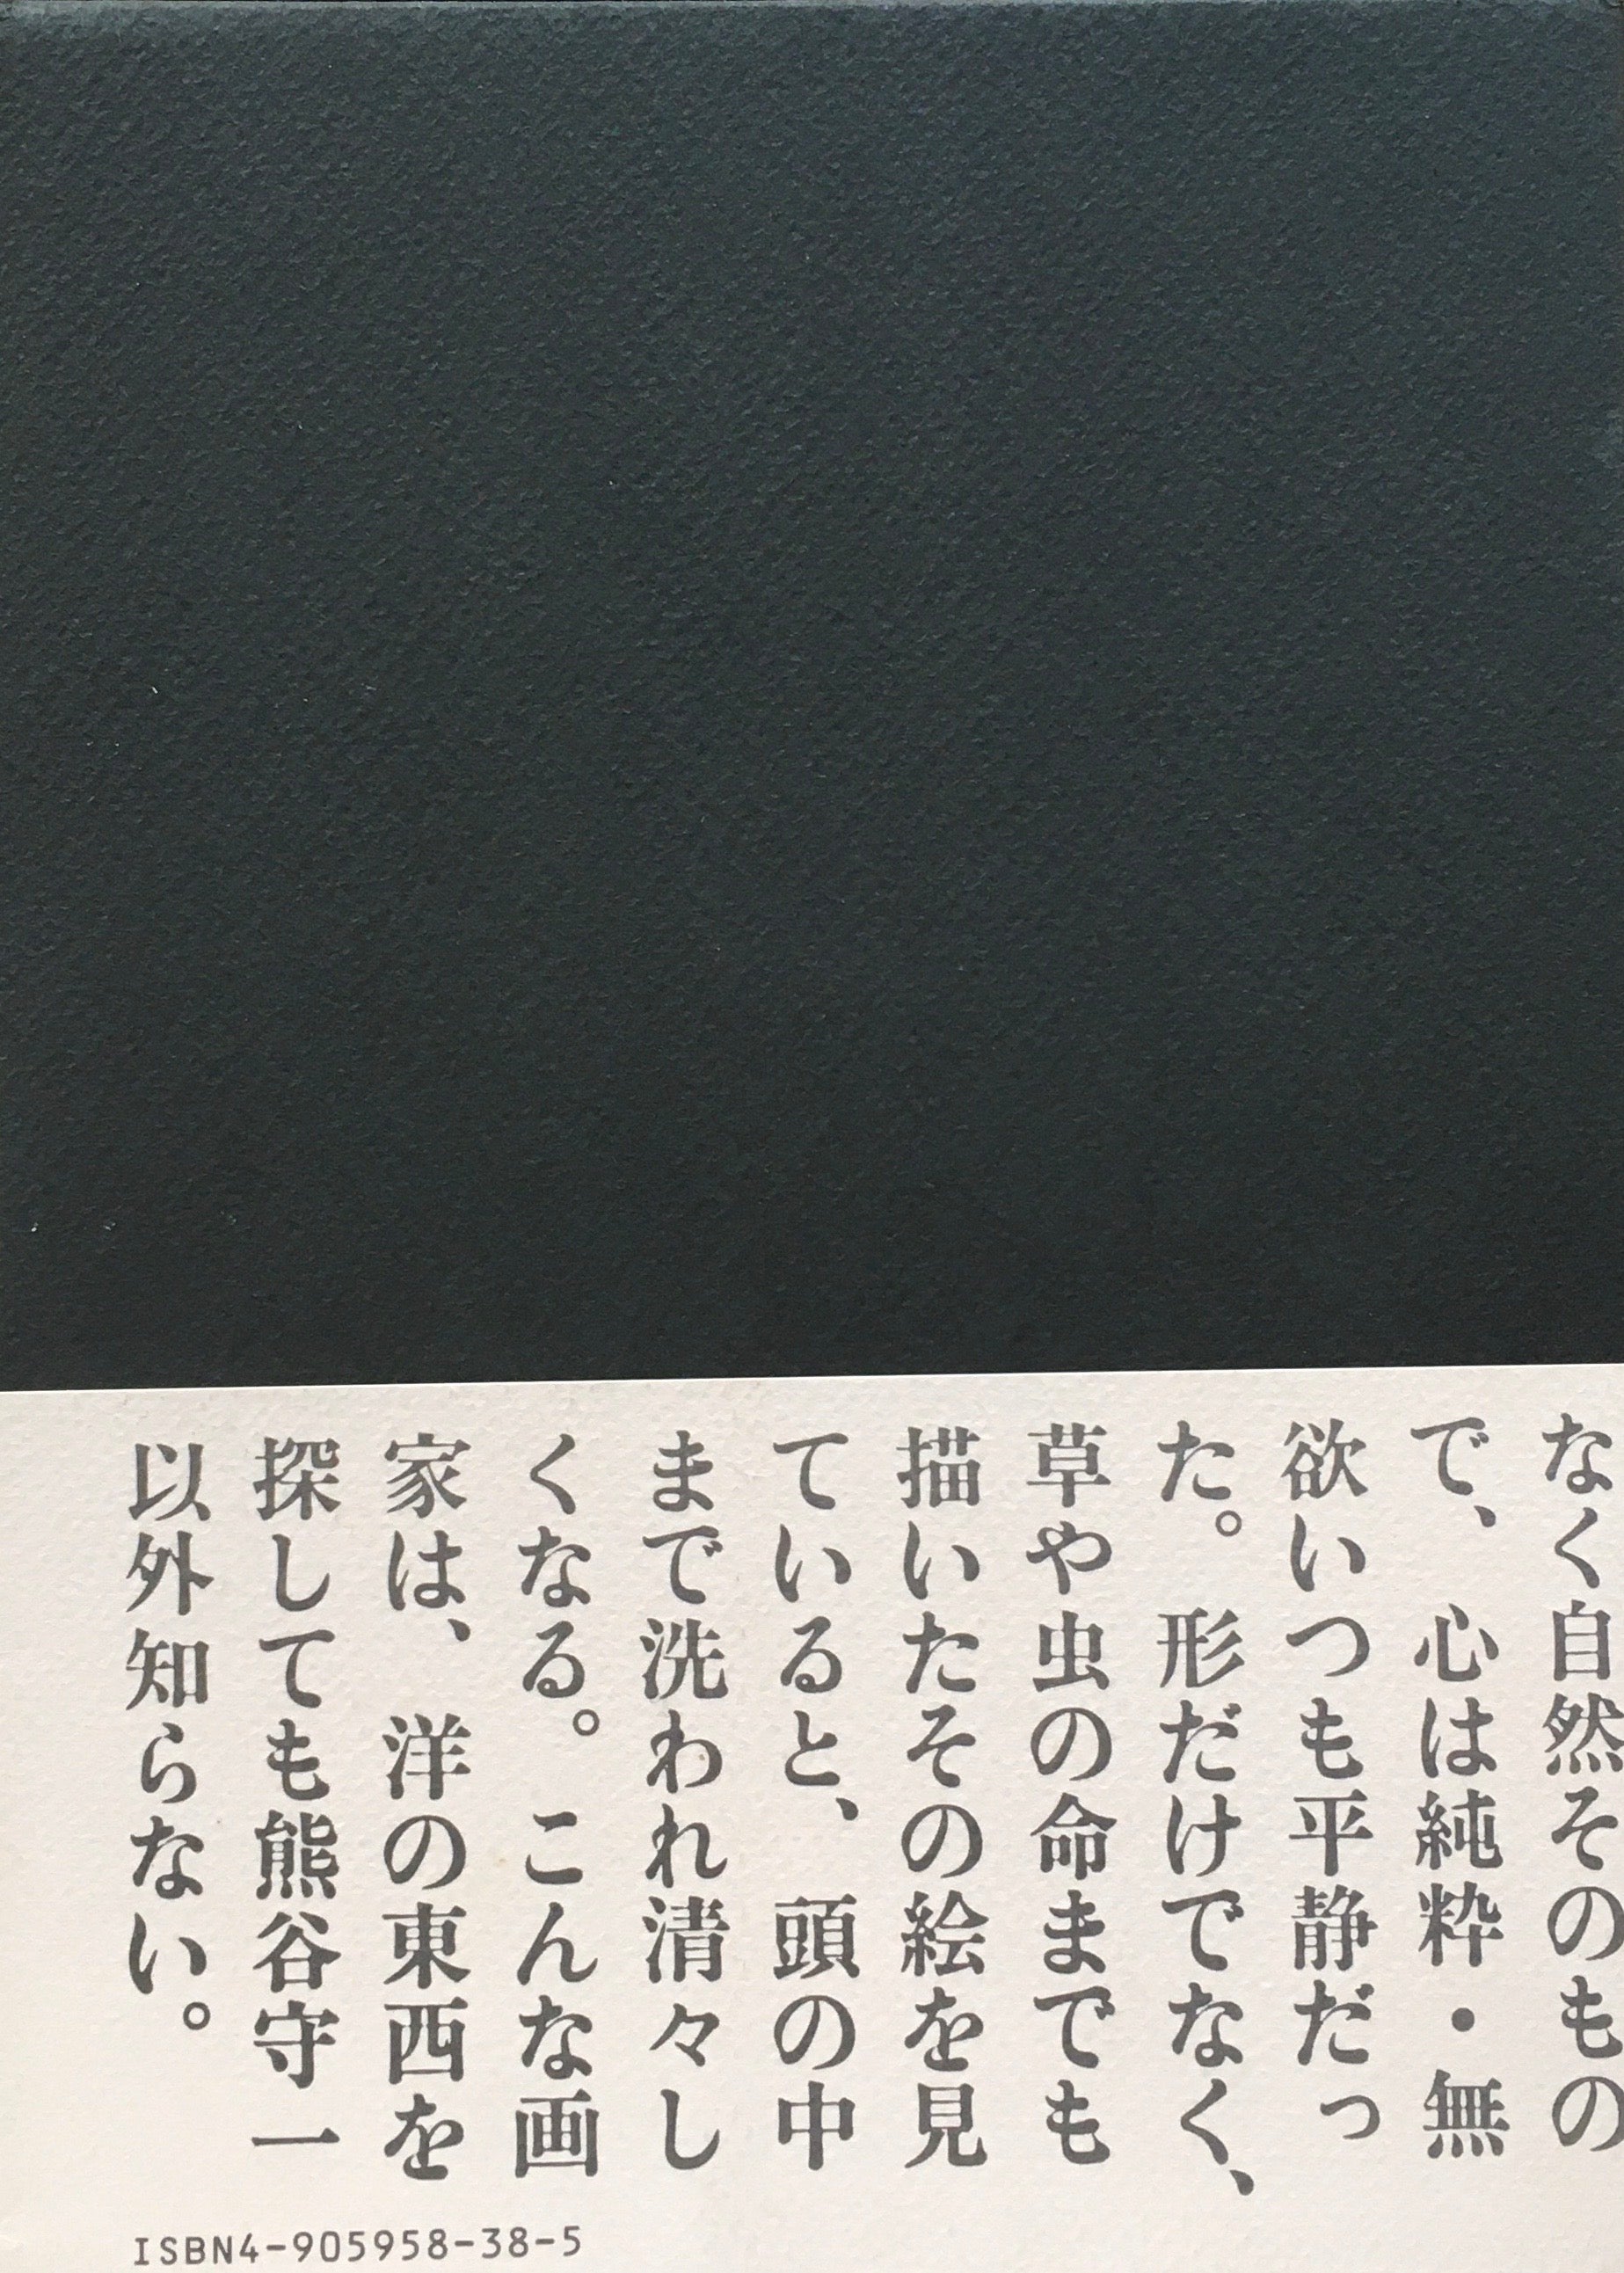 なく自然そのもの
で、心は純粋・無
欲いつも平静だっ
た。形だけでなく、
草や虫の命までも
描いたその絵を見
ていると、頭の中
まで洗われ清々し
くなる。こんな画
家は、洋の東西を
探しても熊谷守一
以外知らない。
ISBN4-905958-38-5